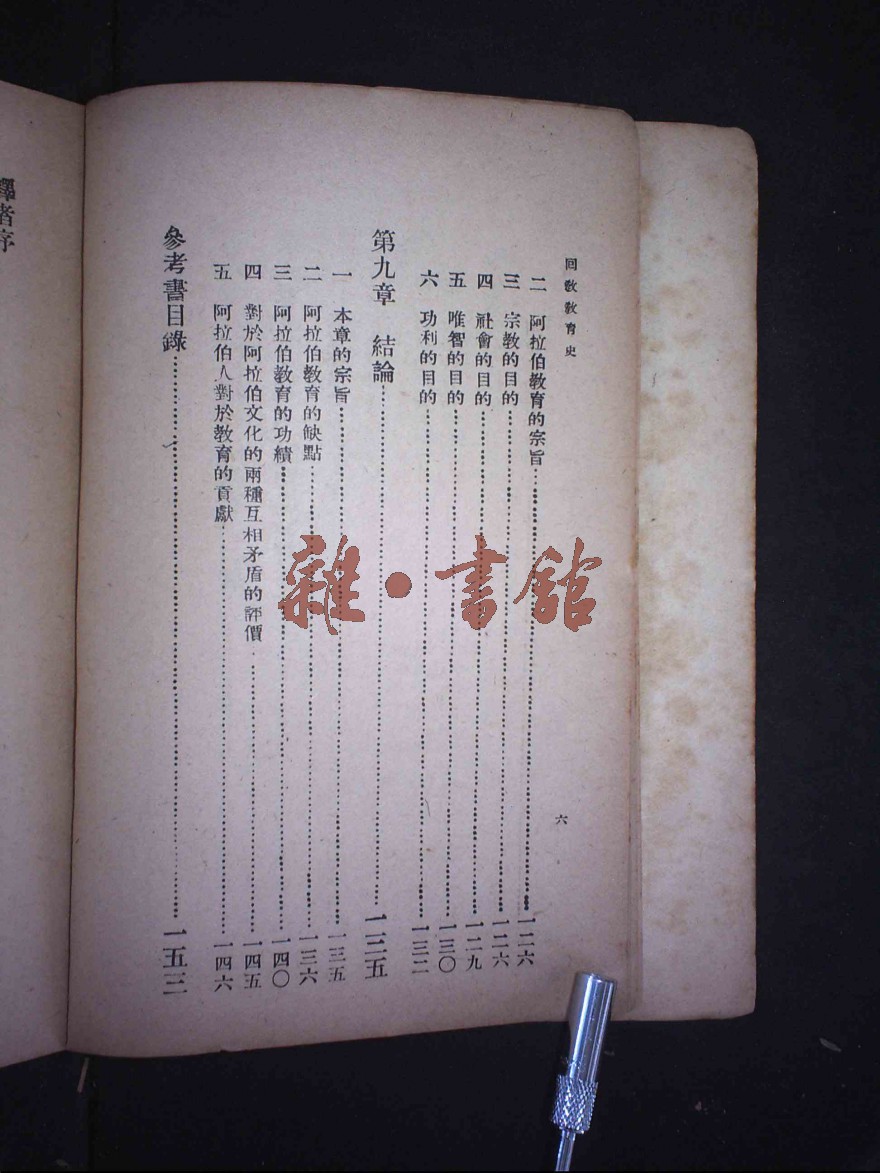 回教教育史
六
二 阿拉伯教育的宗旨……一二六
三 宗教的目的……一二六
四 社會的目的……一二九
五 唯智的目的……一三〇
六 功利的目的……一三二
第九章 結論……一三五
一 本章的宗旨……一三五
二 阿拉伯教育的缺點……一三六
三 阿拉伯教育的功績……一四〇
四 對於阿拉伯文化的兩種互相矛盾的評價……一四五
五 阿拉伯人對於教育的貢獻……一四六
參考書目錄……一五三
譯者序
雜·書館